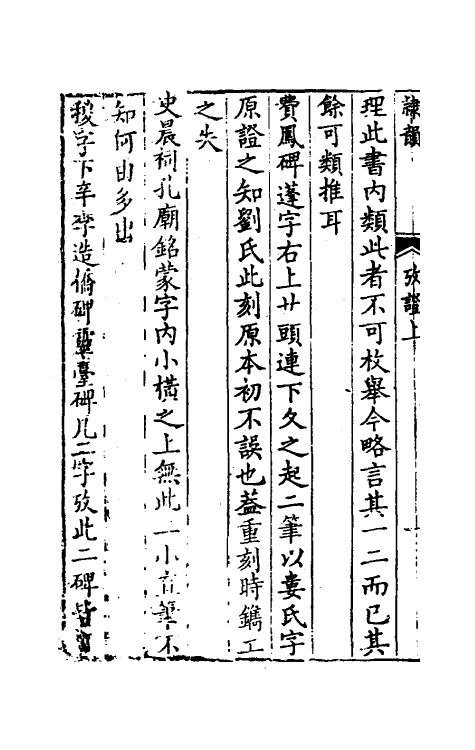 隷韻
攷證上
理此書内類此者不可枚舉今略言其一二而已其
餘可類推耳
費鳳碑蓬字右上廾頭連下夂之起二筆以婁氏字
原證之知劉氏此刻原本初不誤也葢重刻時鐫工
之失
史晨祠孔廟銘蒙字内小橫之上無此一小直筆不
知何由多出
稷字下辛李造橋碑靈臺碑凡二字攷此二碑皆